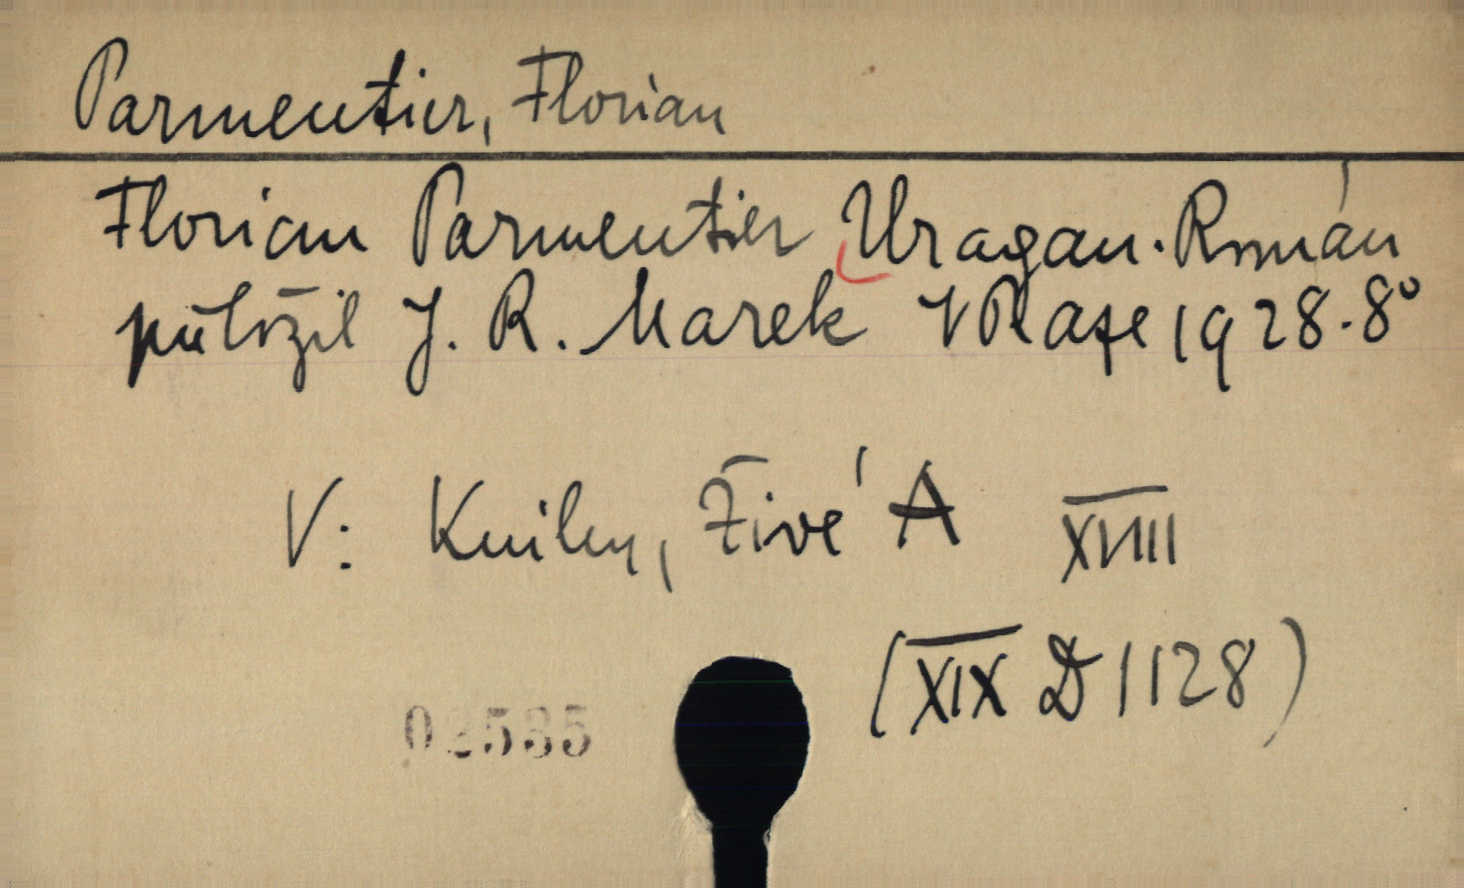 Parmentier, Florian
Florian Parmentier Uragan. Román
přeložil J. R. Marek V Praze 1928. 8°
V: Knihy, Živé A XVIIII
(XIX D 1128)
02535